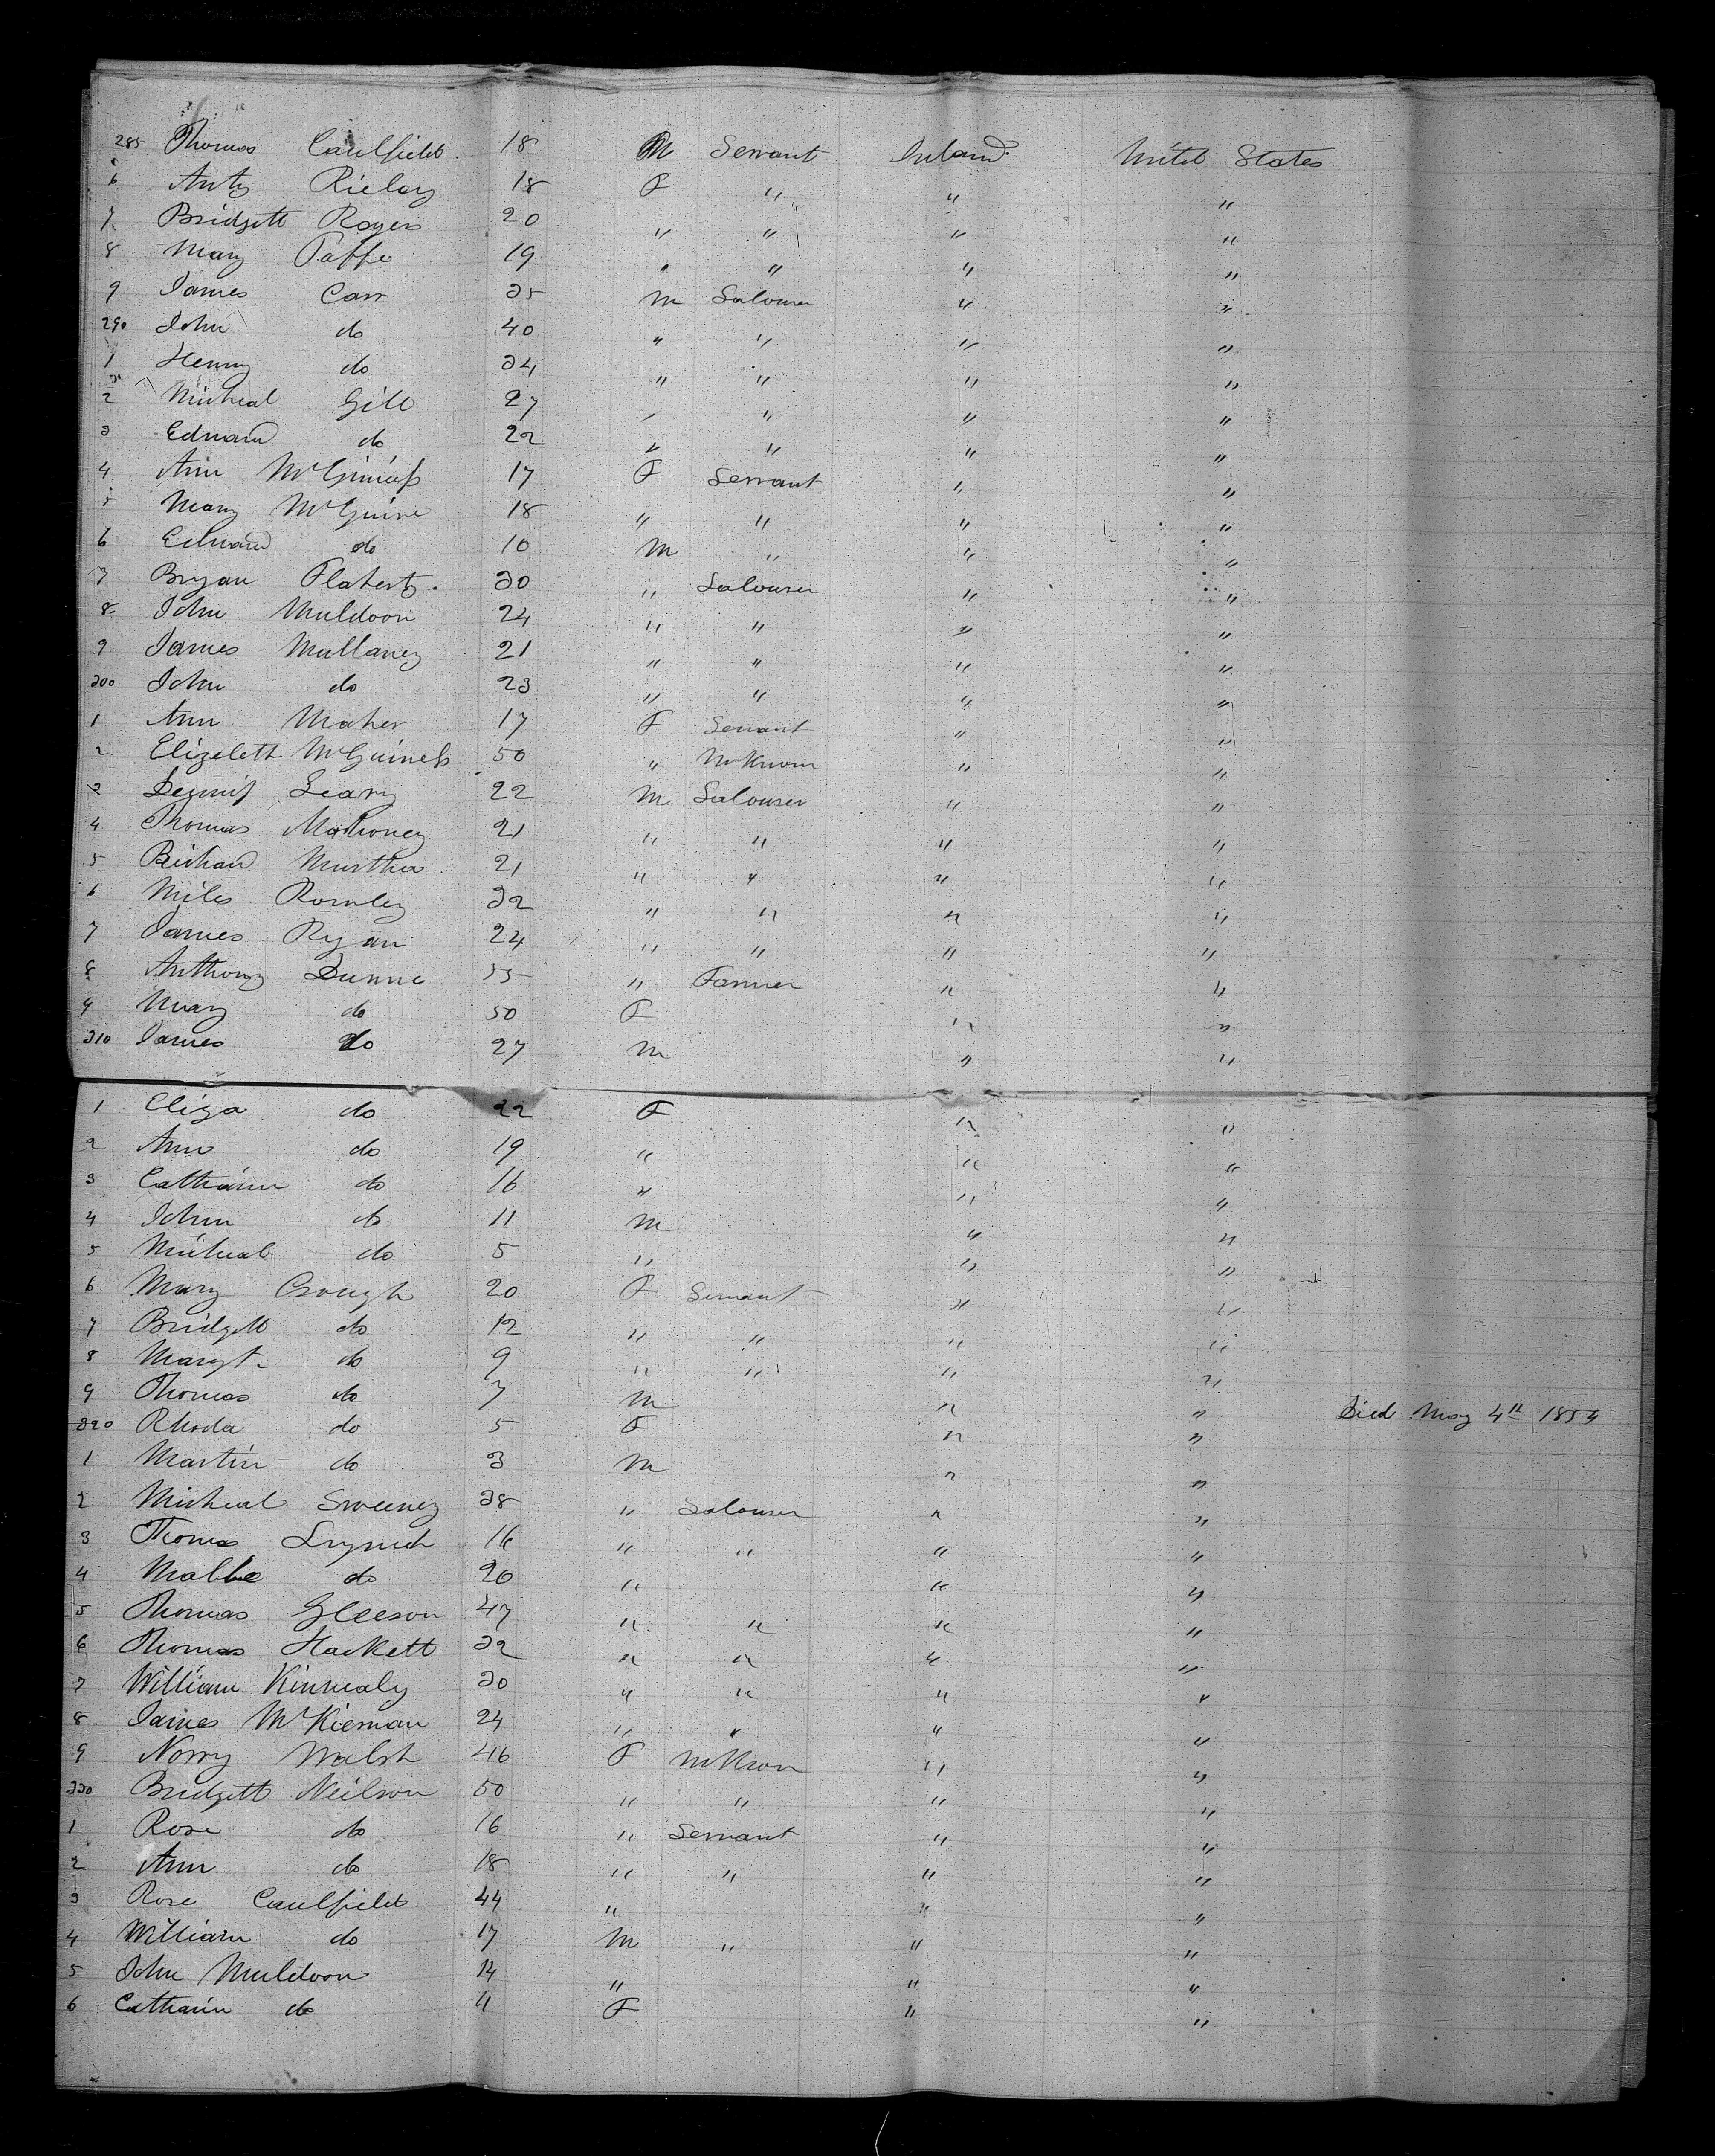 285 Thomas Caulfield 18 M Servant Ireland United States
6 Anty Rieley 18 F " " "
7 Bridgett Rogers 20 " " " "
8 Mary Taffe 19 " " " "
9 James Carr 35 M Labourer " "
290 John do 40 " " " "
1 Henry do 34 " " " "
2 Micheal Gill 27 " " " "
3 Edward do 22 " " " "
4 Ann McGuiness 17 F Servant " "
5 Mary McGuire 18 " " " "
6 Edward do 10 M " " "
7 Bryan Flaherty 30 " Labourer " "
8 John Muldoon 24 " " " "
9 James Mullaney 21 " " " "
300 John do 23 " " " "
1 Ann Maher 17 F Servant " "
2 Elizabeth McGuiness 50 " " "
3 Dennis Leary 22 M Labourer " "
4 Thomas Mahoney 21 " " " "
5 Richard Murtha 21 " " " "
6 Miles 32 " " " "
7 James Ryan 24 " " " "
8 Anthony Dunne 55 " Farmer " "
9 Mary do 50 F " "
310 James do 27 M " "
1 Eliza do 22 F " "
2 Ann do 19 " " "
3 Catharine do 16 " " "
4 John do 11 M " "
5 Micheal do 5 " " "
6 Mary Crough 20 F Servant " "
7 Bridgett do 12 " " " "
8 Margt do 9 " " " "
9 Thomas do 7 M " " Died May 4th 1854
320 Rhoda do 5 F " "
1 Martin do 3 M " "
2 Micheal Sweeney 38 " Labourer " "
3 Thomas Lynch 16 " " " "
4 do 20 " " "
5 Thomas Gleeson 47 " " " "
6 Thomas Hackett 32 " " " "
7 William Kinnealy 30 " " " "
8 James McKiernan 24 " " " "
9 Norry Walsh 46 F " "
330 Bridgett Neilson 50 " " " "
1 Rose do 16 " Servant " "
2 Ann do 18 " " " "
3 Rose Caulfield 44 " " "
4 William do 17 M " " "
5 John Muldoon 14 " " "
6 Catharin do 11 F " "